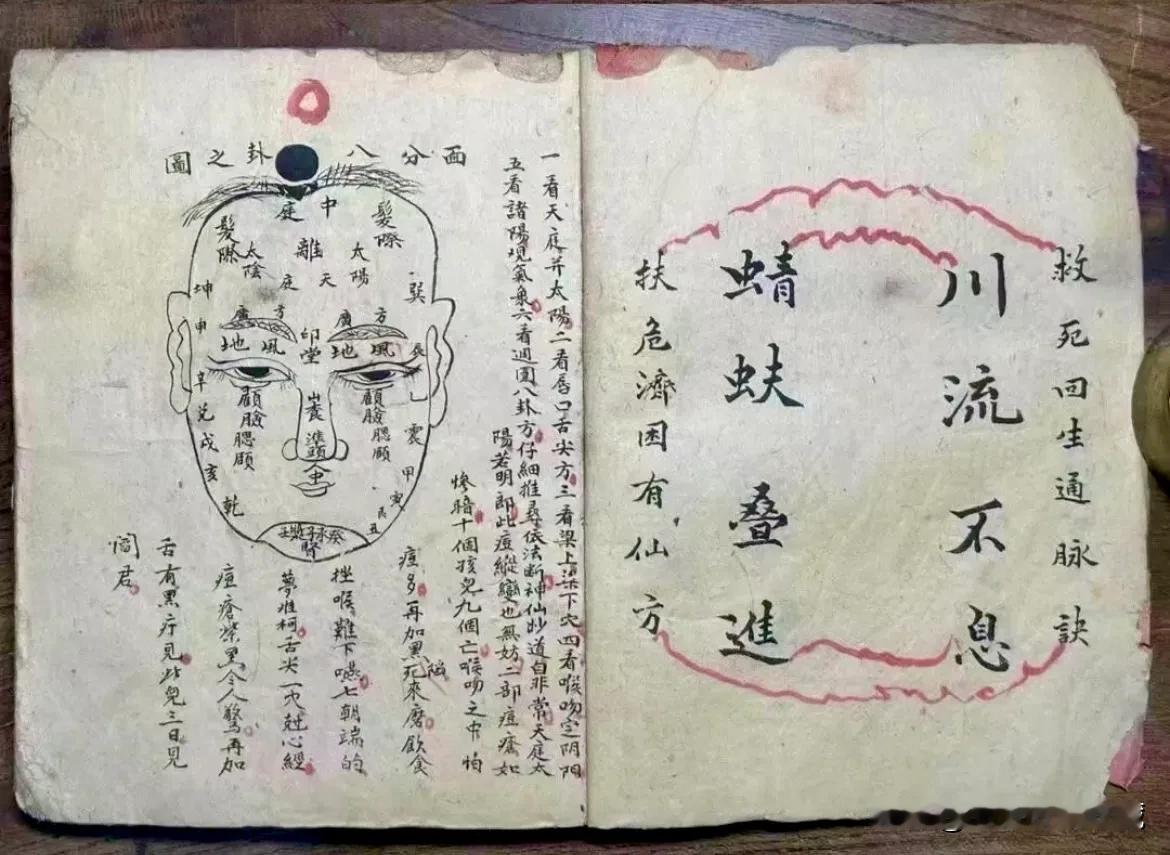 救死回生通脉訣
川流不息
蜻蚨叠進
扶危濟困有仙方
一看天庭并太陽二看唇口舌尖方三看梁上梁下穴四看喉吻定阴阳
五看諸陽現氣象六看週圍八卦方仔細推尋依法断神仙妙道自非常天庭太
陽若明郎此痘縱變也無妨二部痘瘡如
慘暗十個孩兒九個亡喉吻之中怕
痘多再加黑陷死來磨飲食
挫喉難下嚥七朝端的
夢难柯舌尖一穴尅心經
痘瘡紫黑令人驚再加
舌有黑疔見此兒三日見
閻君
面分八卦之圖
中庭
髮際
髮際
離
太陽
太陰
天庭
巽
坤
方廣
方廣
申
印堂
風地
風地
辰
乙
辛
兌
戌
亥
乾
顴臉
腮頤
顴臉
腮頤
震
甲
寅
艮
丑
準頭
人中
癸承子漿壬
腎